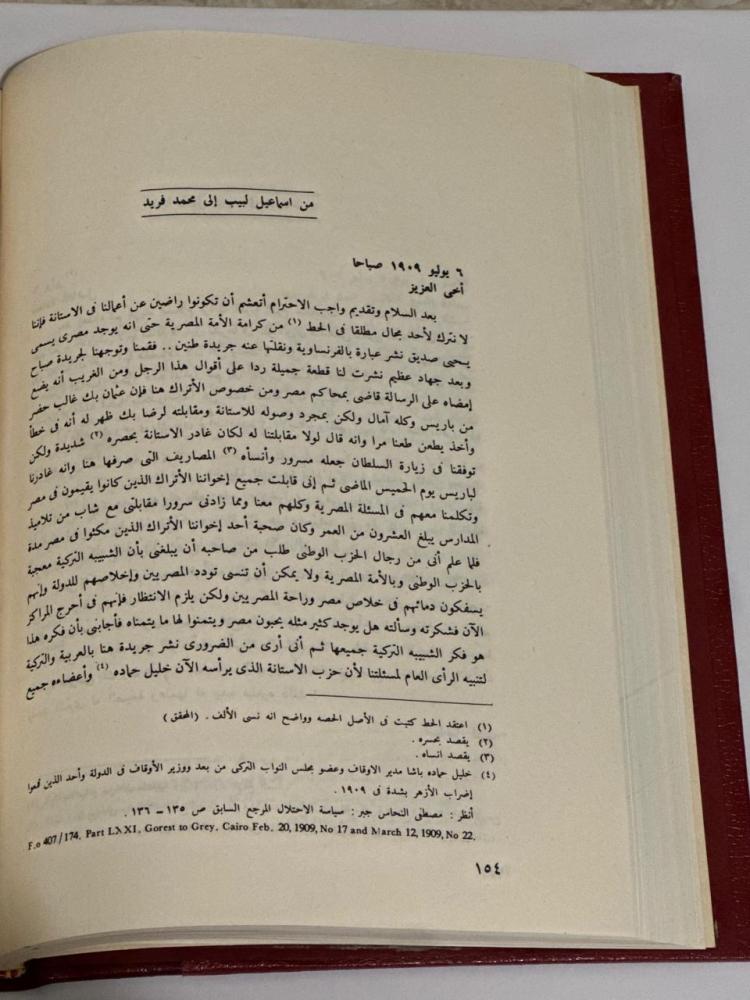 من اسماعيل لبيب إلى محمد فريد
٦ يوليو ١٩٠٩ صباحا
أخى العزيز
بعد السلام وتقديم واجب الاحترام أتعشم أن تكونوا راضين عن أعمالنا فى الاستانة فإننا
لا نترك لأحد مجال مطلقا فى الحط (١) من كرامة الأمة المصرية حتى انه يوجد مصرى يسمى
يحيى صديق نشر عبارة بالفرنساوية ونقلتها عنه جريدة طنين .. فقمنا وتوجهنا لجريدة صباح
وبعد جهاد عظيم نشرت لنا قطعة جميلة ردا على أقوال هذا الرجل ومن الغريب أنه يضع
إمضاه على الرسالة قاضى بمحاكم مصر ومن خصوص الأتراك هنا فإن عثمان بك غالب حضر
من باريس وكله آمال ولكن بمجرد وصوله للاستانة ومقابلته لرضا بك ظهر له أنه فى خطأ
وأخذ يطعن طعنا مرا وانه قال لولا مقابلتنا له لكان غادر الاستانة بحصره (٢) شديدة ولكن
توفقنا فى زيارة السلطان جعله مسرور وأنسأه (٣) المصاريف التى صرفها هنا وانه غادرنا
لباريس يوم الخميس الماضى ثم إنى قابلت جميع إخواننا الأتراك الذين كانوا يقيمون فى مصر
وتكلمنا معهم فى المسئلة المصرية وكلهم معنا ومما زادنى سرورا مقابلتى مع شاب من تلاميذ
المدارس يبلغ العشرون من العمر وكان صحبة أحد إخواننا الأتراك الذين مكثوا فى مصر مدة
فلما علم أنى من رجال الحزب الوطنى طلب من صاحبه أن يبلغنى بأن الشبيبه التركية معجبة
بالحزب الوطنى وبالأمة المصرية ولا يمكن أن تنسى تودد المصريين وإخلاصهم للدولة وأنهم
يسفكون دمائهم فى خلاص مصر وراحة المصريين ولكن يلزم الانتظار فإنهم فى أحرج المراكز
الآن فشكرته وسألته هل يوجد كثير مثله يحبون مصر ويتمنوا لها ما يتمناه فأجابنى بأن فكره هذا
هو فكر الشبيبه التركية جميعها ثم أنى أرى من الضرورى نشر جريدة هنا بالعربية والتركية
لتنبيه الرأى العام لمسئلتنا لأن حزب الاستانة الذى يرأسه الآن خليل حماده (٤) وأعضاءه جميع
(١) اعتقد الحط كتبت فى الأصل الحصه وواضح انه نسى الألف . (المحقق)
(٢) يقصد بحسره .
(٣) يقصد انساه .
(٤) خليل حماده باشا مدير الاوقاف وعضو بمجلس النواب التركى من بعد ووزير الأوقاف فى الدولة وأحد الذين قمعوا
إضراب الأزهر بشدة فى ١٩٠٩ .
أنظر : مصطفى النحاس جبر : سياسة الاحتلال المرجع السابق ص ١٣٥ – ١٣٦ .
F.o 407/174. Part LXXI, Gorest to Grey, Cairo Feb. 20, 1909, No 17 and March 12, 1909, No 22.
١٥٤